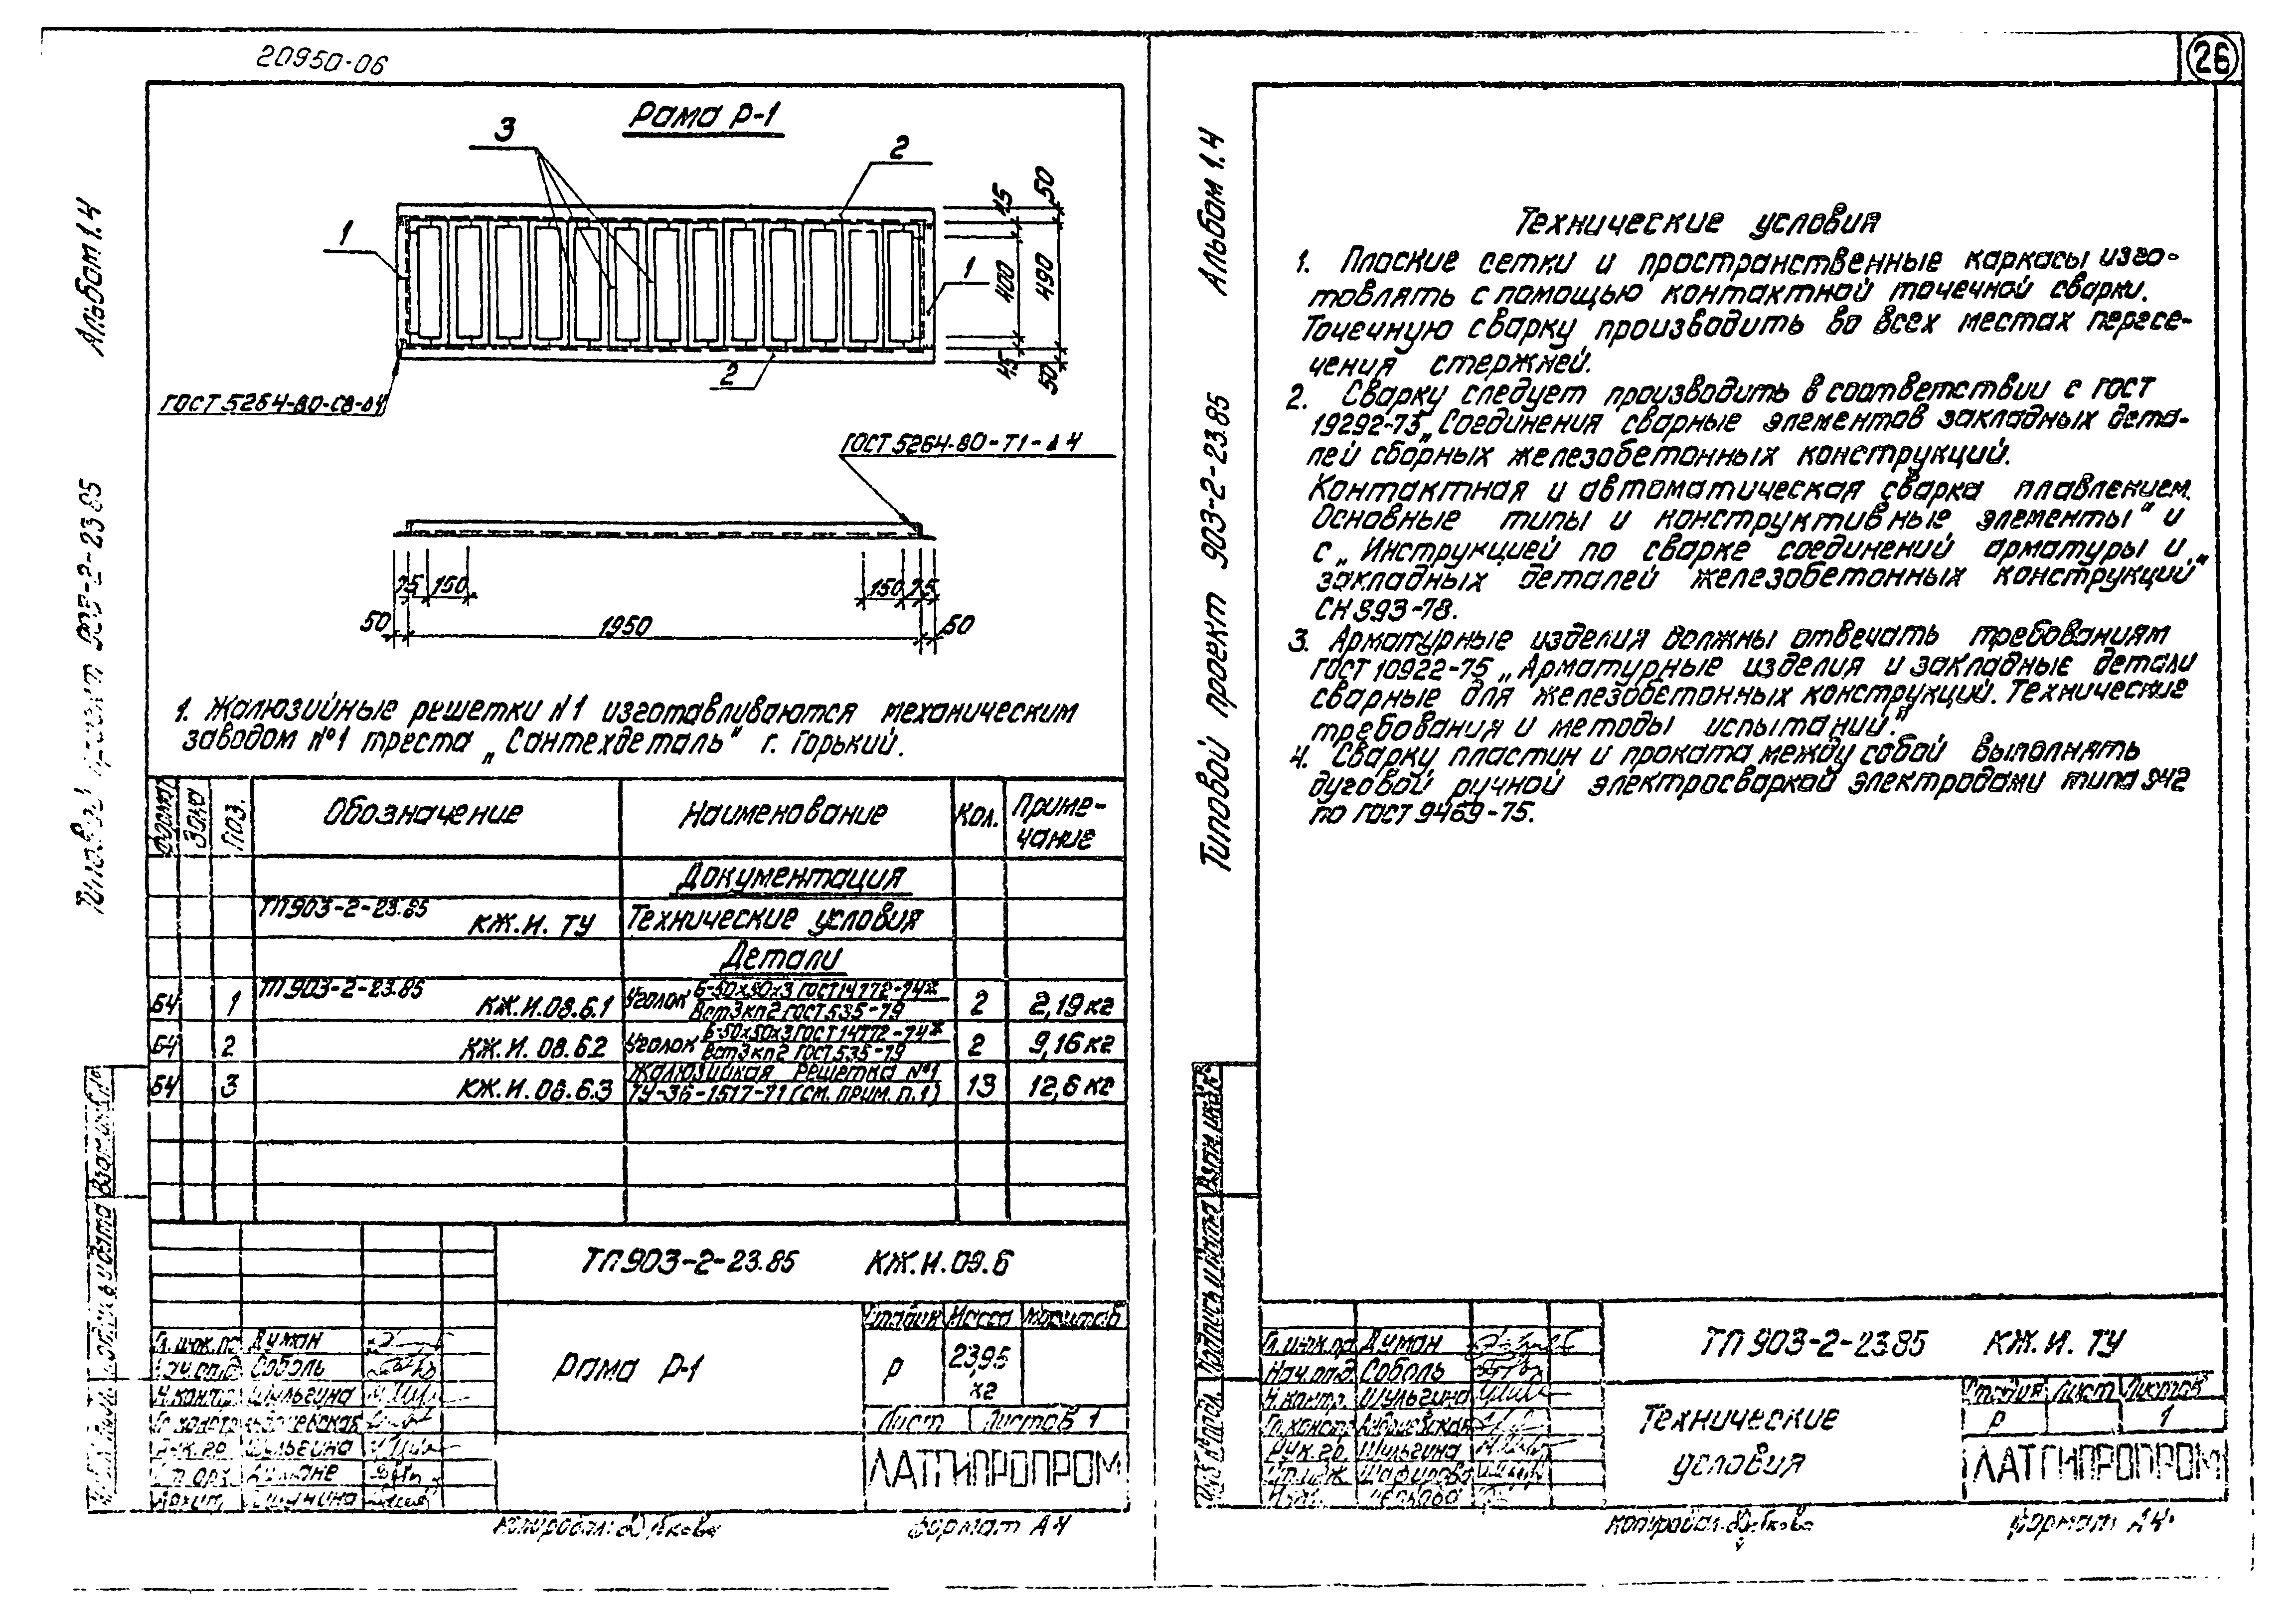 20950-06
26
Альбом 1.4
Рама Р-1
3
2
1
1
2
15
50
400
490
45
50
ГОСТ 5264-80-С8-Δ4
ГОСТ 5264-80-Т1-Δ4
75
150
150
75
50
1950
50
1. Жалюзийные решетки N1 изготавливаются механическим
заводом №1 треста „Сантехдеталь“ г. Горький.
Поз.
Обозначение
Наименование
Кол.
Приме-
чание
Документация
ТП903-2-23.85
КЖ.И. ТУ
Технические условия
Детали
Б4 1 ТП903-2-23.85 КЖ.И.08.6.1 Уголок Б-50х50х3 ГОСТ14772-74* ВСт3кп2 ГОСТ535-79 2 2,19кг
Б4 2 КЖ.И. 08.6.2 Уголок Б-50х50х3 ГОСТ14772-74* ВСт3кп2 ГОСТ535-79 2 9,16кг
Б4 3 КЖ.И. 08.6.3 Жалюзийная решетка №1 ТУ-36-1517-71 (см. прим. п.1) 13 12,6 кг
ТП903-2-23.85 КЖ.И.09.6
Рама Р-1
Стадия Масса Масштаб
Р
23,95
кг
Лист Листов 1
ЛАТГИПРОПРОМ
Думан
Соболь
Н.контр. Шульгина
Рук.гр. Шульгина
Копировал:
формат А4
Альбом 1.4
Типовой проект 903-2-23.85
Технические условия
1. Плоские сетки и пространственные каркасы изго-
товлять с помощью контактной точечной сварки.
Точечную сварку производить во всех местах пересе-
чения стержней.
2. Сварку следует производить в соответствии с ГОСТ
19292-73 „Соединения сварные элементов закладных дета-
лей сборных железобетонных конструкций.
Контактная и автоматическая сварка плавлением.
Основные типы и конструктивные элементы“ и
с „Инструкцией по сварке соединений арматуры и
закладных деталей железобетонных конструкций“
СН 393-78.
3. Арматурные изделия должны отвечать требованиям
ГОСТ 10922-75 „Арматурные изделия и закладные детали
сварные для железобетонных конструкций. Технические
требования и методы испытаний“.
4. Сварку пластин и проката между собой выполнять
дуговой ручной электросваркой электродами типа Э42
по ГОСТ 9469-75.
ТП 903-2-23.85 КЖ.И. ТУ
Технические
условия
Стадия Лист Листов
Р 1
ЛАТГИПРОПРОМ
Гл.инж.пр. Думан
Нач.отд. Соболь
Н.контр. Шульгина
Рук.гр. Шульгина
формат А4